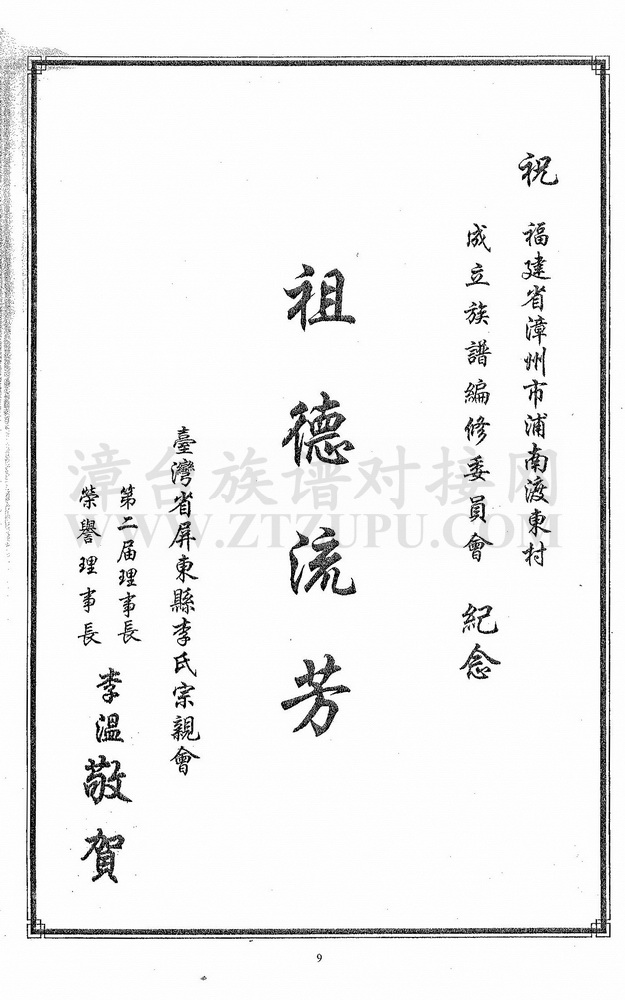 祝 福建省漳州市浦南渡東村
成立族譜編修委員會 紀念
祖德流芳
臺灣省屏東縣李氏宗親會
第二届理事長
榮譽理事長
李溫敬賀
漳台族谱对接网
WWW.ZTZUPU.COM
9